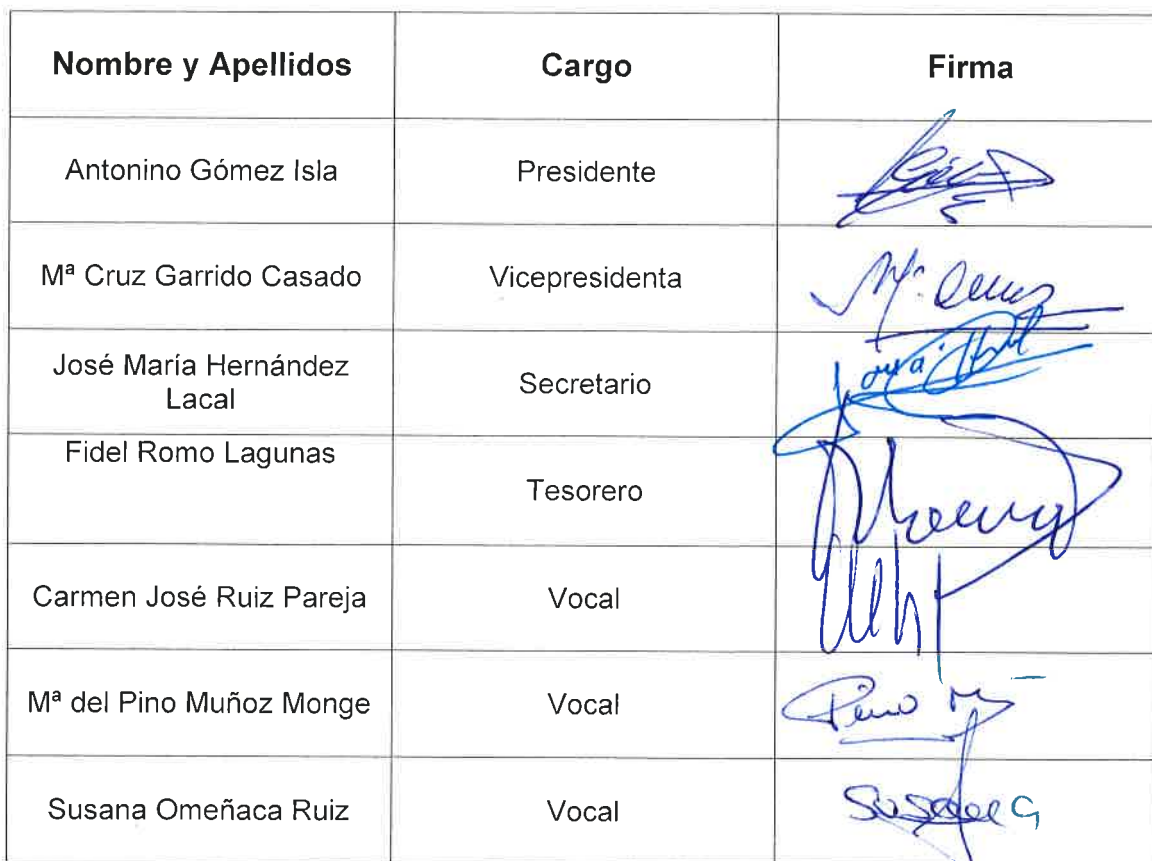 Nombre y Apellidos Cargo Firma
Antonino Gómez Isla Presidente
Mª Cruz Garrido Casado Vicepresidenta Mª Cruz
José María Hernández
Lacal Secretario
Fidel Romo Lagunas
Tesorero
Carmen José Ruiz Pareja Vocal
Mª del Pino Muñoz Monge Vocal Pino M
Susana Omeñaca Ruiz Vocal Susana